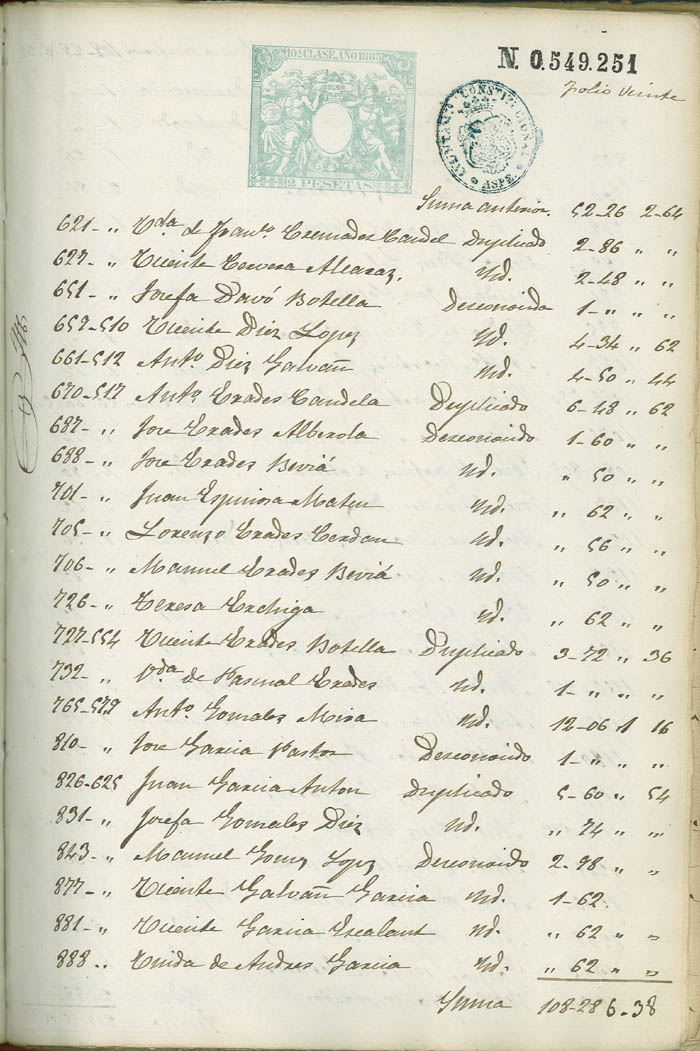 10ª CLASE. AÑO 1885
2 PESETAS
N. 0.549.251
AYUNTAMIENTO CONSTITUCIONAL
ASPE.
folio veinte
Suma anterior. 52-26 2-64
621- " Vda. de Franco. Cremades Candel Duplicado 2-86 " "
627- " Vicente Cervera Alcaraz. Yd. 2-48 " "
651- " Josefa Davó Botella Desconocida 1- " " "
659-510 Vicente Diez Lopez Yd. 4-34 " 62
661-512 Anto. Diez Galvañ Yd. 4-50 " 44
670-517 Anto. Erades Candela Duplicado 6-48 " 62
687- " Jose Erades Alberola Desconocido 1-60 " "
688- " Jose Erades Beviá Yd. " 50 " "
701- " Juan Espinosa Mateu Yd. " 62 " "
705- " Lorenzo Erades Cerdan Yd. " 56 " "
706- " Manuel Erades Beviá Yd. " 50 " "
726- " Teresa Yd. " 62 " "
727-554 Vicente Erades Botella Duplicado 3-72 " 36
732- " Vda de Pascual Erades Yd. 1- " " "
765-579 Anto. Gonzales Mira Yd. 12-06 1 16
810- " Jose Garcia Pastor Desconocido 1- " " "
826-625 Juan Garcia Anton Duplicado 5-60 " 54
831- " Josefa Gonzales Diez Yd. " 74 " "
843- " Manuel Gomez Lopez Desconocido 2-98 " "
877- " Vicente Galvañ Garcia Yd. 1-62.
881- " Vicente Garcia Escalant Yd. " 62 " "
888 " Viuda de Andres Garcia Yd. " 62 " "
Suma 108-28 6-38